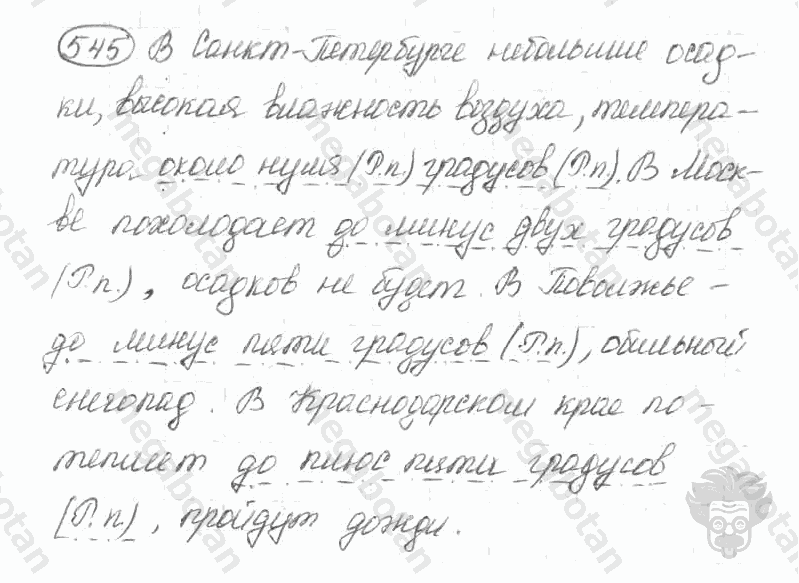 545 В Санкт-Петербурге небольшие осад-
ки, высокая влажность воздуха, темпера-
тура около нуля (Р.п.) градусов (Р.п). В Моск-
ве похолодает до минус двух градусов
(Р.п.), осадков не будет. В Поволжье -
до минус пяти градусов (Р.п.), обильный
снегопад. В Краснодарском крае по-
теплеет до плюс пяти градусов
(Р.п.), пройдут дожди.
megabotan